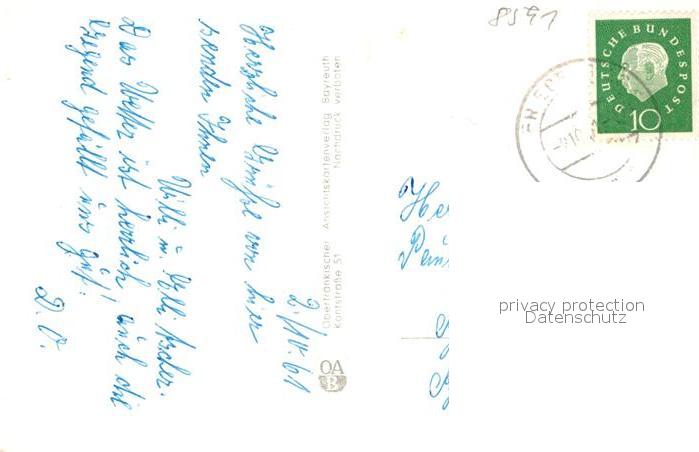 8591
DEUTSCHE BUNDESPOST
10
2. IV. 61
Herzliche Grüße von hier
senden Ihnen
Willi u. Elli
Das Wetter ist herrlich! auch die
Gegend gefällt uns gut!
D. O.
Oberfränkischer Ansichtskartenverlag Bayreuth
Kantstraße 51 Nachdruck verboten
OA
B
He
privacy protection
Datenschutz